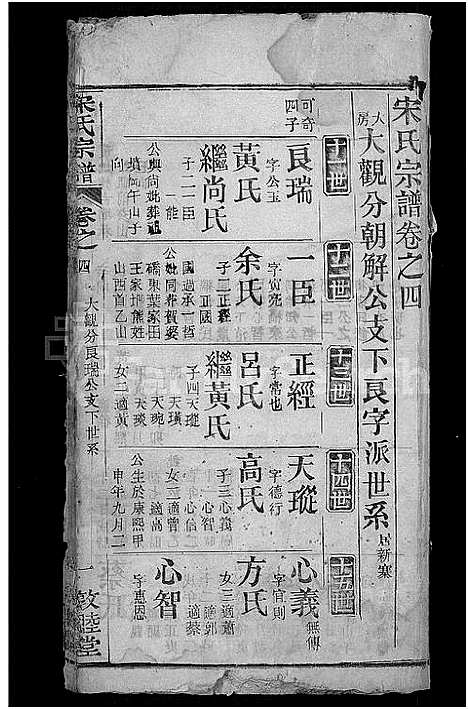 宋氏宗譜卷之四
大房
大觀分朝解公支下良字派世系
居新寨
十一世
十二世
十三世
十四世
十五世
可奇四子
良瑞
字公玉
黃氏
子二一臣
一能
繼尚氏
公與尚妣葬祖
墳岡午山子
向
一臣
余氏
子三正經
正國
國過承一哲
公妣同葬賀婆
礄東葉家田
王家拊熊姓
山酉首乙山
正經
字常也
呂氏
繼黃氏
子四天瑽
天璜
天琬
天琰
女二適黃
天瑽
字德行
高氏
子三心義
心智
心信
女三適管
適高
公生於康熙甲
申年九月二
心義
無傳
字宜則
方氏
女三適蕭
適郭
適蔡
心智
字惠恩
宋氏宗譜
卷之四
大觀分良瑞公支下世系
一
敦睦堂